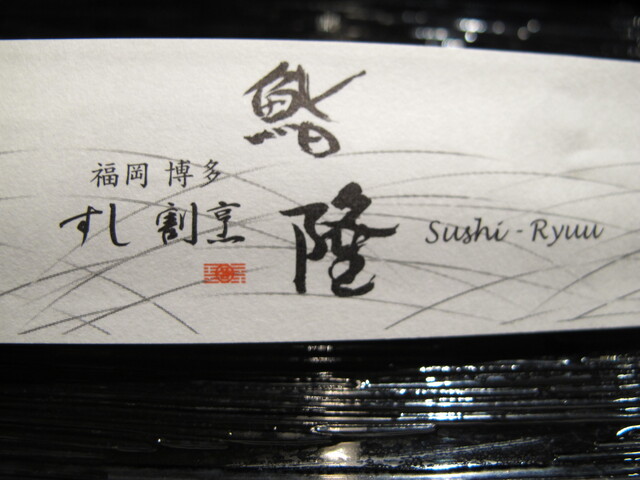 鮨
隆
福岡 博多
すし 割烹
Sushi - Ryuu